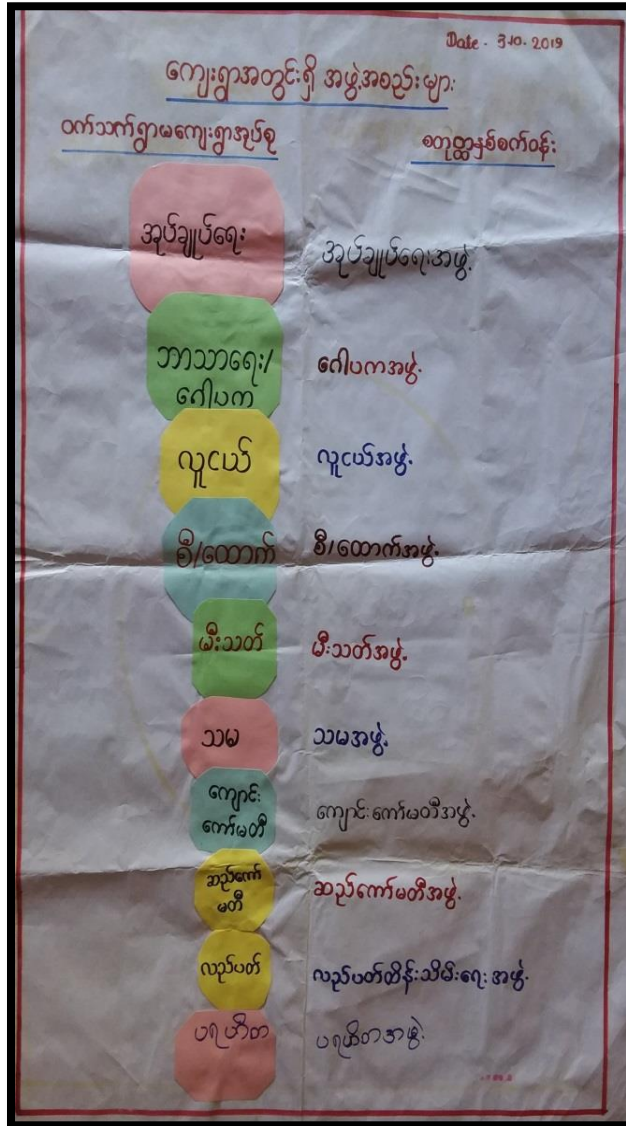 Date - 3-10-2019
ကျေးရွာအတွင်းရှိ အဖွဲ့အစည်းများ
ဝက်သက်ရွာမကျေးရွာအုပ်စု
စတုတ္ထနှစ်စက်ဝန်း
အုပ်ချုပ်ရေး
အုပ်ချုပ်ရေးအဖွဲ့
ဘာသာရေး/
ဂေါပက
ဂေါပကအဖွဲ့
လူငယ်
လူငယ်အဖွဲ့
စီ/ထောက်
စီ/ထောက်အဖွဲ့
မီးသတ်
မီးသတ်အဖွဲ့
သမ
သမအဖွဲ့
ကျောင်း
ကော်မတီ
ကျောင်းကော်မတီအဖွဲ့
ဆည်ကော်
မတီ
ဆည်ကော်မတီအဖွဲ့
လည်ပတ်
လည်ပတ်ထိန်းသိမ်းရေးအဖွဲ့
ပရဟိတ
ပရဟိတအဖွဲ့